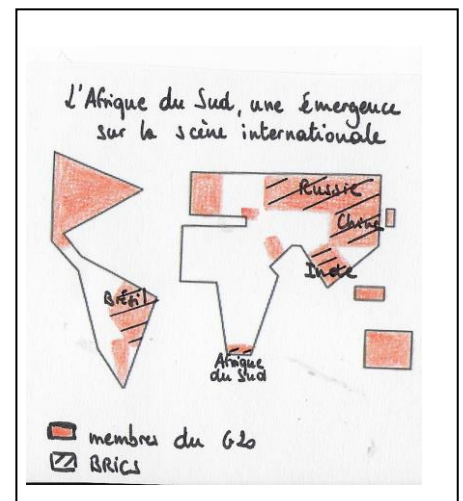 L'Afrique du Sud, une émergence
sur la scène internationale
Russie
Chine
Inde
Brésil
Afrique
du Sud
membres du G20
BRICS